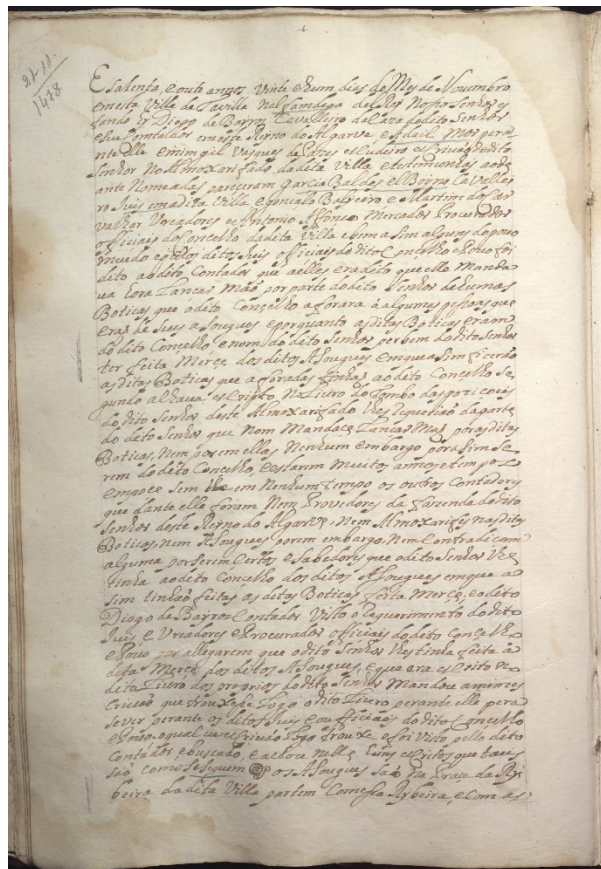 21-11-
1478
E satenta, e outo annos vinte e hum dias do Mes de Novembro
em esta Villa de Tavilla na Alfandega del Rey Nosso Senhor es
tando hi Diogo de Bairros Cavalleiro da Caza do dito Senhor
e seu Contador em este Reyno do Algarve e Adail Mor pera
nte elle e mim gil Vasques escudeiro escrivaõ do dito
Senhor No Almoxarifado da dita Villa e testemunhas ao di
ante Nomeadas pareceram Garcia Baldes el Bairro Cavallei
ro Juis em a dita Villa e gonçalo Botreiro e Martim do Car
valhal Vreadores e Antonio Affonço Mercador Procurador
officiais do Concelho da dita Villa e bem asim alguns do povo
e pellos ditos Juis officiais do dito Concelho e Povo foi
dito ao dito Contador que a elles era dito que elle Manda
va hora Lançar maõ por parte do dito Senhor de humas
Boticas que o dito Conçelho aforara a algumas pessoas que
eraõ de seus asougues e porquanto as ditas Boticas eram
do dito Conçelho, e nom do dito Senhor por bem do dito Senhor
ter feita Merçe dos ditos Asougues em que asim fizeraõ
as ditas Boticas que aforadas tinhaõ ao dito Concelho Se
gundo achava escripto Na Livro do tombo das
do dito Senhor deste Almoxarifado lhes requeriaõ da parte
do dito Senhor que Nom Mandaçe Lançar Maõ por as ditas
Boticas, Nem por em ellas Nenhum embargo por asim Se
rem do dito Concelho, e estarem muitos annos e tempo
em posse Sem lhe em Nenhum tempo os outros Contadores
que dante elle foram Nem Provedores da fazenda do dito
Senhor deste Reyno do Algarve, Nem Almoxarifes nas ditas
Boticas, nem Asougues porem embargo, Nem Contradiçam
alguma por Serem Certos e Sabedores que o dito Senhor Rey
tinha ao dito Concelho dos ditos Asougues em que a
Sim tinhaõ feitas as ditas Boticas feita Merçe, e o dito
Diogo de Bairros Contador Visto o Requerimento do dito
Juis, e Vreadores e Procurador officiais do dito Concelho
e Povo por allegarem que o dito Senhor lhes tinha feita a
dita Merçe dos ditos Asougues, e que era escrito no
dito Livro dos proprios do dito Senhor Mandou a mim es
crivaõ que trouxese Logo o dito Livro perante elle pera
se ver perante os ditos Juis e officiais do dito Concelho
e Povo o qual eu escrivaõ Logo trouxe e foi Visto pello dito
Contador, e buscado, e achou nelle huns escritos que taes
saõ como se seguem @ os Asougues saõ na Praca da Ry
beira da dita Villa partem Com esta Rybeira, e com as